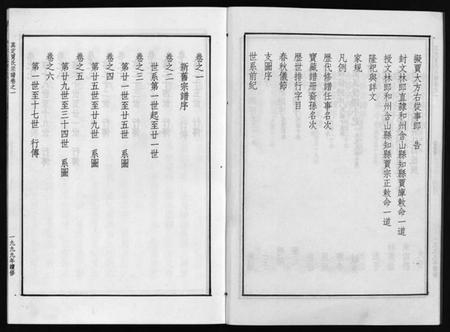 擬賈大方右從事郎　告
封文林郎直隸和州含山縣知縣賈庫敕命一道
授文林郎和州含山縣知縣賈宗正敕命一道
隆祀與詳文
家規
凡例
歷代修譜任事名次
寶藏譜册裔孫名次
歷世排行字目
春秋儀節
支圖序
世系前紀
卷之一
新舊宗譜序
卷之二
世系第一世起至廿一世
卷之三
第廿一世至廿五世　系圖
卷之四
第廿五世至廿九世　系圖
卷之五
第廿九世至三十四世　系圖
卷之六
第一世至十七世　行傳
真定賈氏宗譜卷之一
一九九九年續修